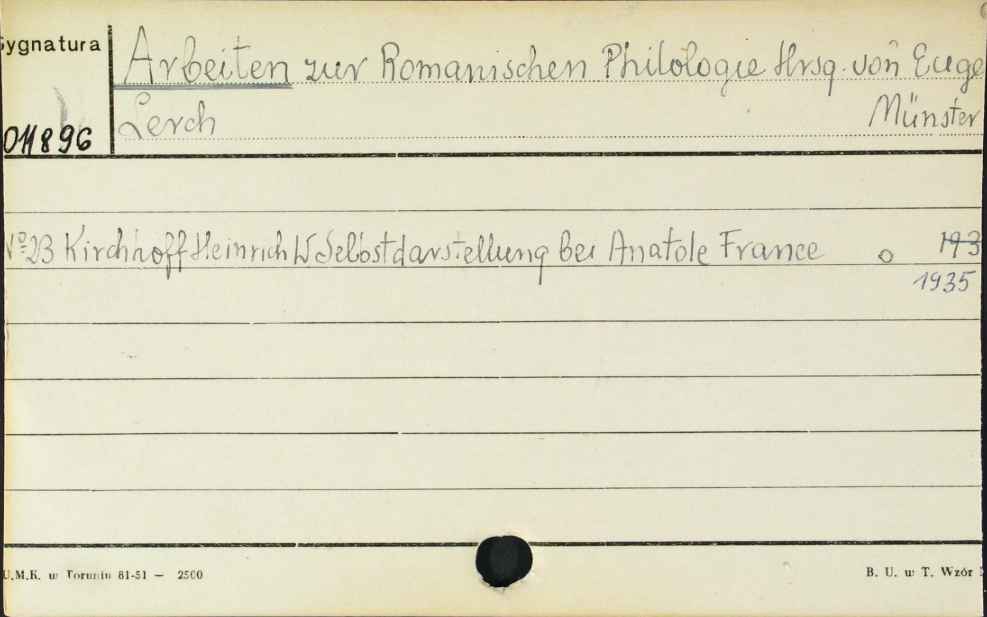 Sygnatura
Arbeiten zur Romanischen Philologie Hrsg. von Euge
Lerch Münster
011896
No 23 Kirchhoff Heinrich W Selbstdarstellung bei Anatole France o 193
1935
U.M.K. w Toruniu 81-51 — 2500
B. U. w T. Wzór